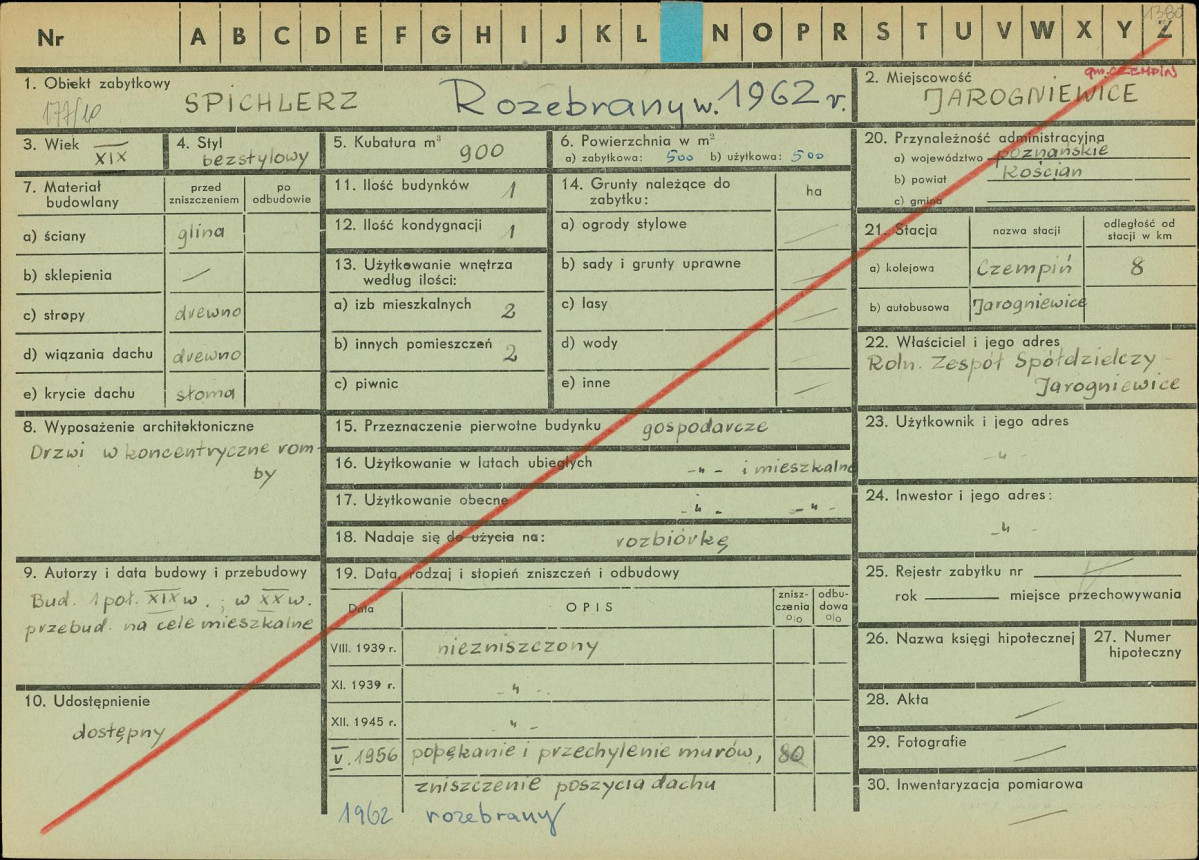 1380
Nr A B C D E F G H I J K L N O P R S T U V W X Y Z
1. Obiekt zabytkowy
SPICHLERZ Rozebrany w. 1962 r.
2. Miejscowość
gm. CZEMPIŃ
JAROGNIEWICE
3. Wiek XIX
4. Styl
bezstylowy
5. Kubatura m³ 900
6. Powierzchnia w m²
a) zabytkowa: 500 b) użytkowa: 500
20. Przynależność administracyjna
a) województwo poznańskie
b) powiat Kościan
c) gmina
7. Materiał budowlany
przed zniszczeniem
po odbudowie
a) ściany glina
b) sklepienia —
c) stropy drewno
d) wiązania dachu drewno
e) krycie dachu słoma
11. Ilość budynków 1
12. Ilość kondygnacji 1
13. Użytkowanie wnętrza
według ilości:
a) izb mieszkalnych 2
b) innych pomieszczeń 2
c) piwnic
14. Grunty należące do
zabytku:
ha
a) ogrody stylowe —
b) sady i grunty uprawne —
c) lasy —
d) wody —
e) inne —
21. Stacja
nazwa stacji
odległość od
stacji w km
a) kolejowa Czempiń 8
b) autobusowa Jarogniewice
22. Właściciel i jego adres
Roln. Zespół Spółdzielczy -
Jarogniewice
8. Wyposażenie architektoniczne
Drzwi w koncentryczne rom-
by
15. Przeznaczenie pierwotne budynku gospodarcze
16. Użytkowanie w latach ubiegłych -"- i mieszkalne
17. Użytkowanie obecne -"- -"-
18. Nadaje się do użycia na: rozbiórkę
23. Użytkownik i jego adres
-"-
24. Inwestor i jego adres:
-"-
9. Autorzy i data budowy i przebudowy
Bud. 1 poł. XIX w. ; w XX w.
przebud. na cele mieszkalne
19. Data, rodzaj i stopień zniszczeń i odbudowy
Data
OPIS
znisz-
czenia
%
odbu-
dowa
%
VIII. 1939 r. niezniszczony
XI. 1939 r. -"-
XII. 1945 r. -"-
V. 1956 popękanie i przechylenie murów, 80
zniszczenie poszycia dachu
1962 rozebrany
25. Rejestr zabytku nr
rok miejsce przechowywania
26. Nazwa księgi hipotecznej
27. Numer
hipoteczny
10. Udostępnienie
dostępny
28. Akta —
29. Fotografie —
30. Inwentaryzacja pomiarowa
—